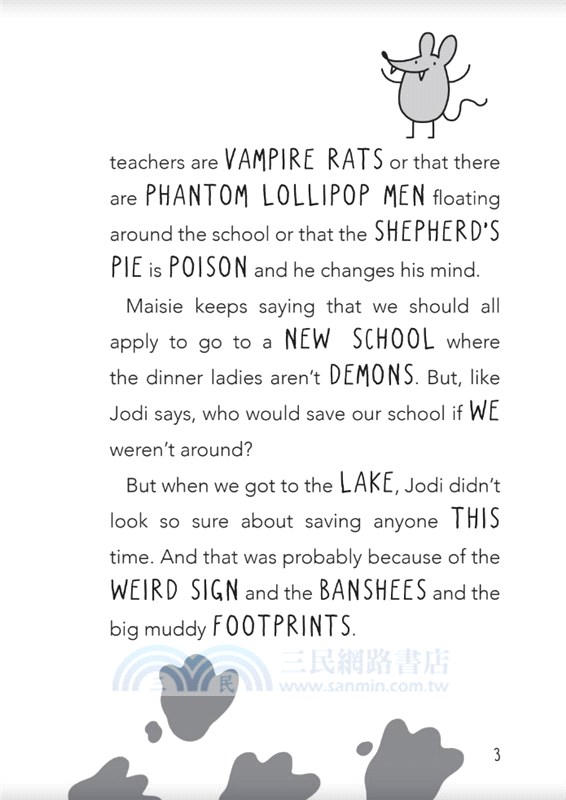 teachers are VAMPIRE RATS or that there
are PHANTOM LOLLIPOP MEN floating
around the school or that the SHEPHERD'S
PIE is POISON and he changes his mind.
Maisie keeps saying that we should all
apply to go to a NEW SCHOOL where
the dinner ladies aren't DEMONS. But, like
Jodi says, who would save our school if WE
weren't around?
But when we got to the LAKE, Jodi didn't
look so sure about saving anyone THIS
time. And that was probably because of the
WEIRD SIGN and the BANSHEES and the
big muddy FOOTPRINTS.
三民網路書店
三 民 www.sanmin.com.tw
3